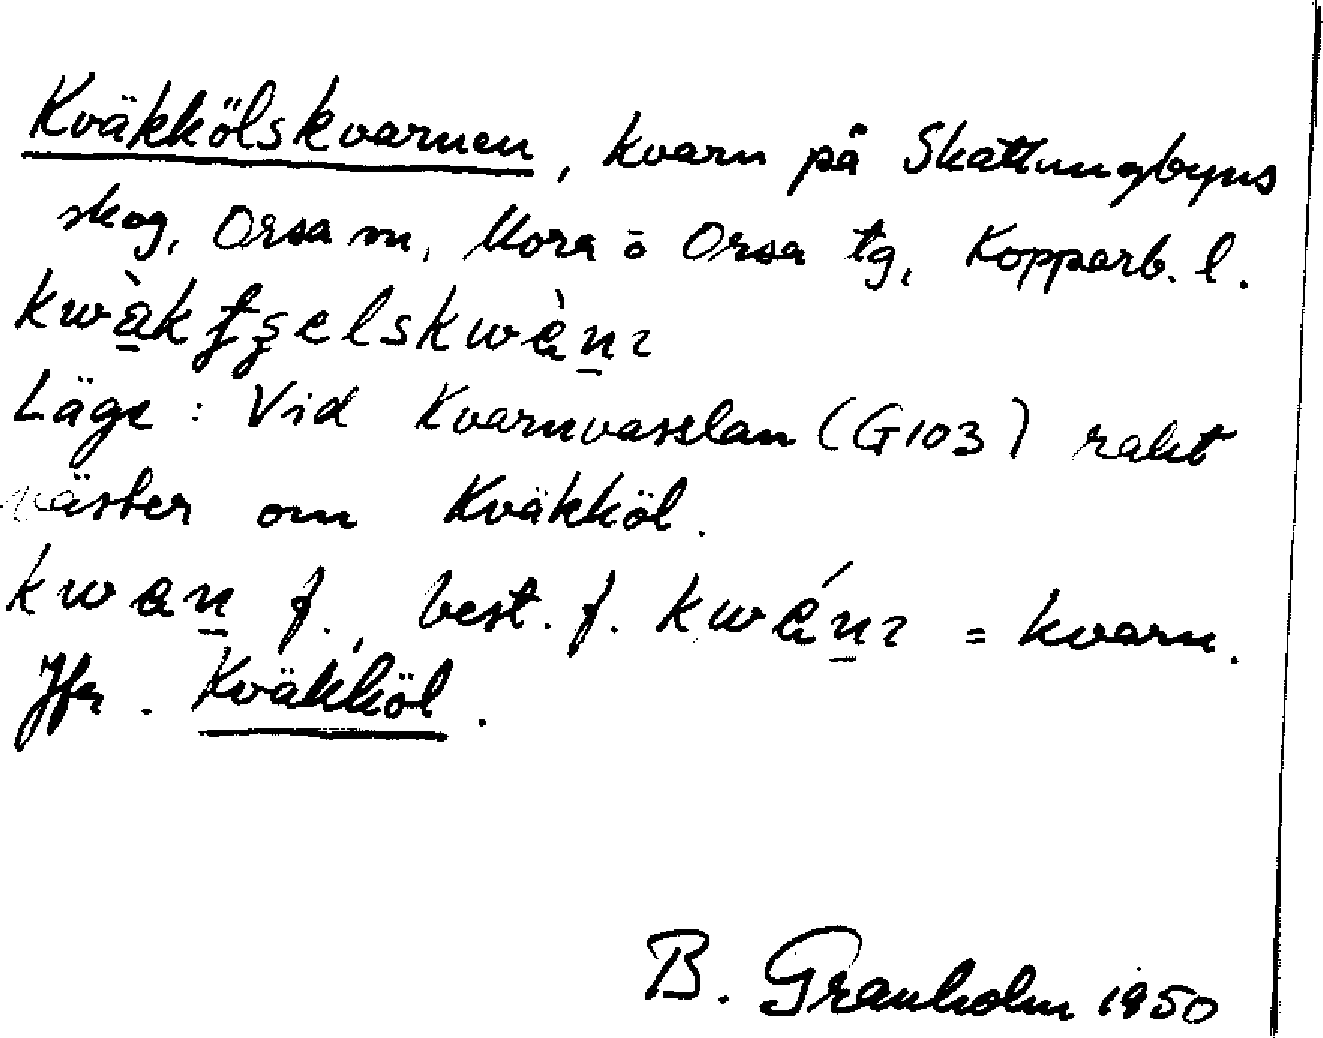 Kväkkölskvarnen, kvarn på Skattungbyns
skog, Orsa sn, Mora o Orsa tg, Kopparb. l.
Läge: Vid Kvarnvasslan (G103) rakt
väster om Kväkköl.
f., best. f. = kvarn.
Jfr. Kväkköl.
B. Granholm 1950